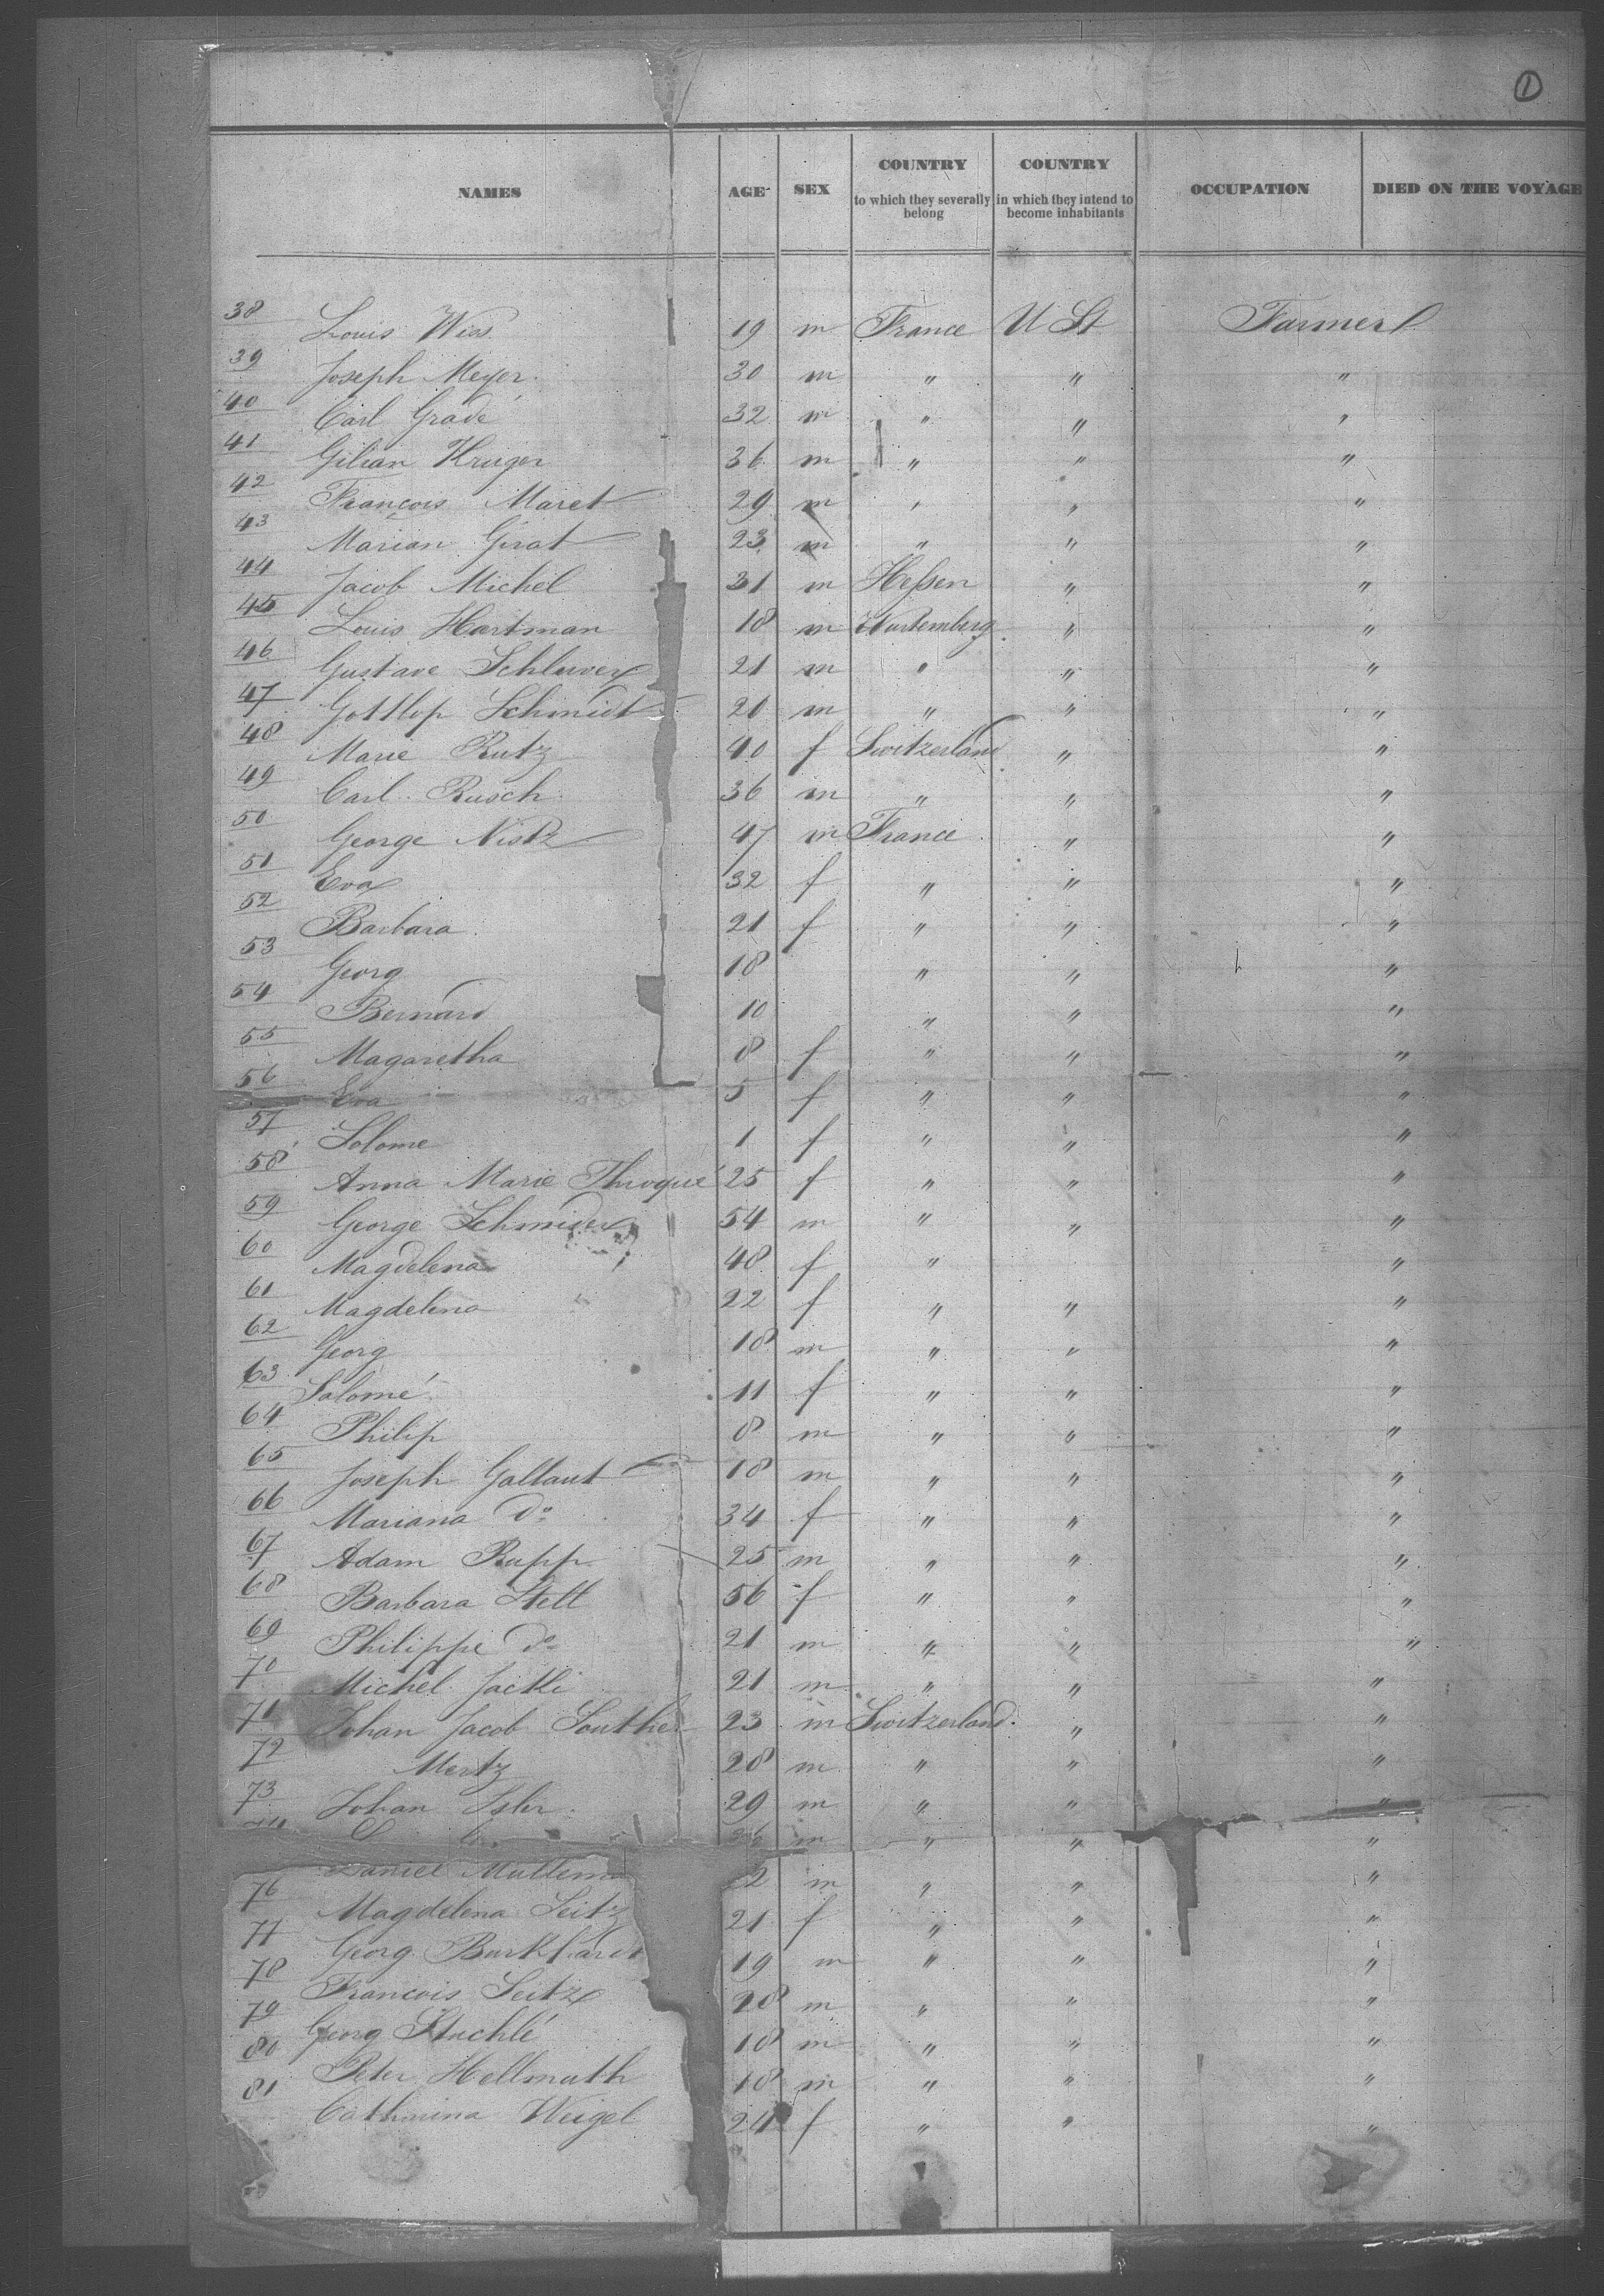 1
NAMES AGE SEX COUNTRY to which they severally belong COUNTRY in which they intend to become inhabitants OCCUPATION DIED ON THE VOYAGE
38 Louis Wiss 19 m France U St Farmer
39 Joseph Meyer 30 m " " "
40 Carl Gradé 32 m " " "
41 Gilian Kruger 36 m " " "
42 François Maret 29 m " " "
43 Marian Girat 23 m " " "
44 Jacob Michel 31 m Hessen " "
45 Louis Hartman 18 m Wurtemberg " "
46 Gustave 21 m " " "
47 Gottlop Schmidt 20 m " " "
48 Marie Rutz 40 f Switzerland " "
49 Carl Rusch 36 m " " "
50 George 47 m France " "
51 Eva 32 f " " "
52 Barbara 21 f " " "
53 Georg 18 " " "
54 Bernard 10 " " "
55 Magaretha 8 f " " "
56 Eva 5 f " " "
57 Solome 1 f " " "
58 Anna Marie 25 f " " "
59 George Schmider 54 m " " "
60 Magdelena 48 f " "
61 Magdelena 22 f " " "
62 Georg 18 m " " "
63 Salomé 11 f " " "
64 Philip 8 m " " "
65 Joseph Gallaut 18 m " " "
66 Mariana do 34 f " " "
67 Adam Rupp 25 m " " "
68 Barbara Stell 56 f " " "
69 Philippe do 21 m " " "
70 Michel Jackli 21 m " " "
71 Johan Jacob Souther 23 m Switzerland " "
72 Mertz 28 m " " "
73 Johan Isler 29 m " " "
36 m " " "
Daniel 2 m " " "
76 Magdelena Seitz 21 f " " "
77 Georg Burkhardt 19 m " " "
78 François Seitz 28 m " " "
79 Georg Stuchlé 18 m " " "
80 Peter Hellmuth 18 m " " "
81 Cathmina Weigel 24 f " " "